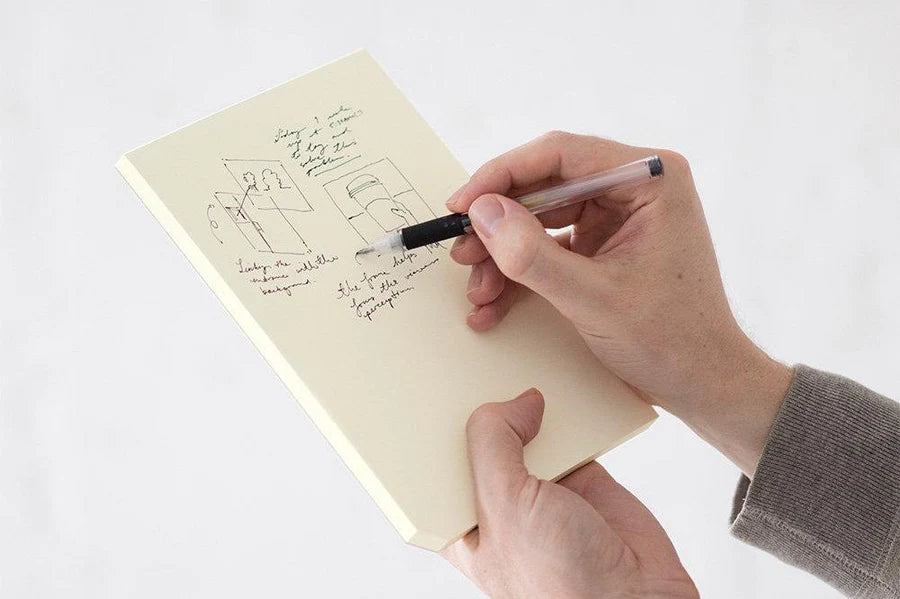 Today I woke
up at 5:30AM
to try and
solve this
problem.
Linking the
with the
background.
the frame helps
focus the
perception.